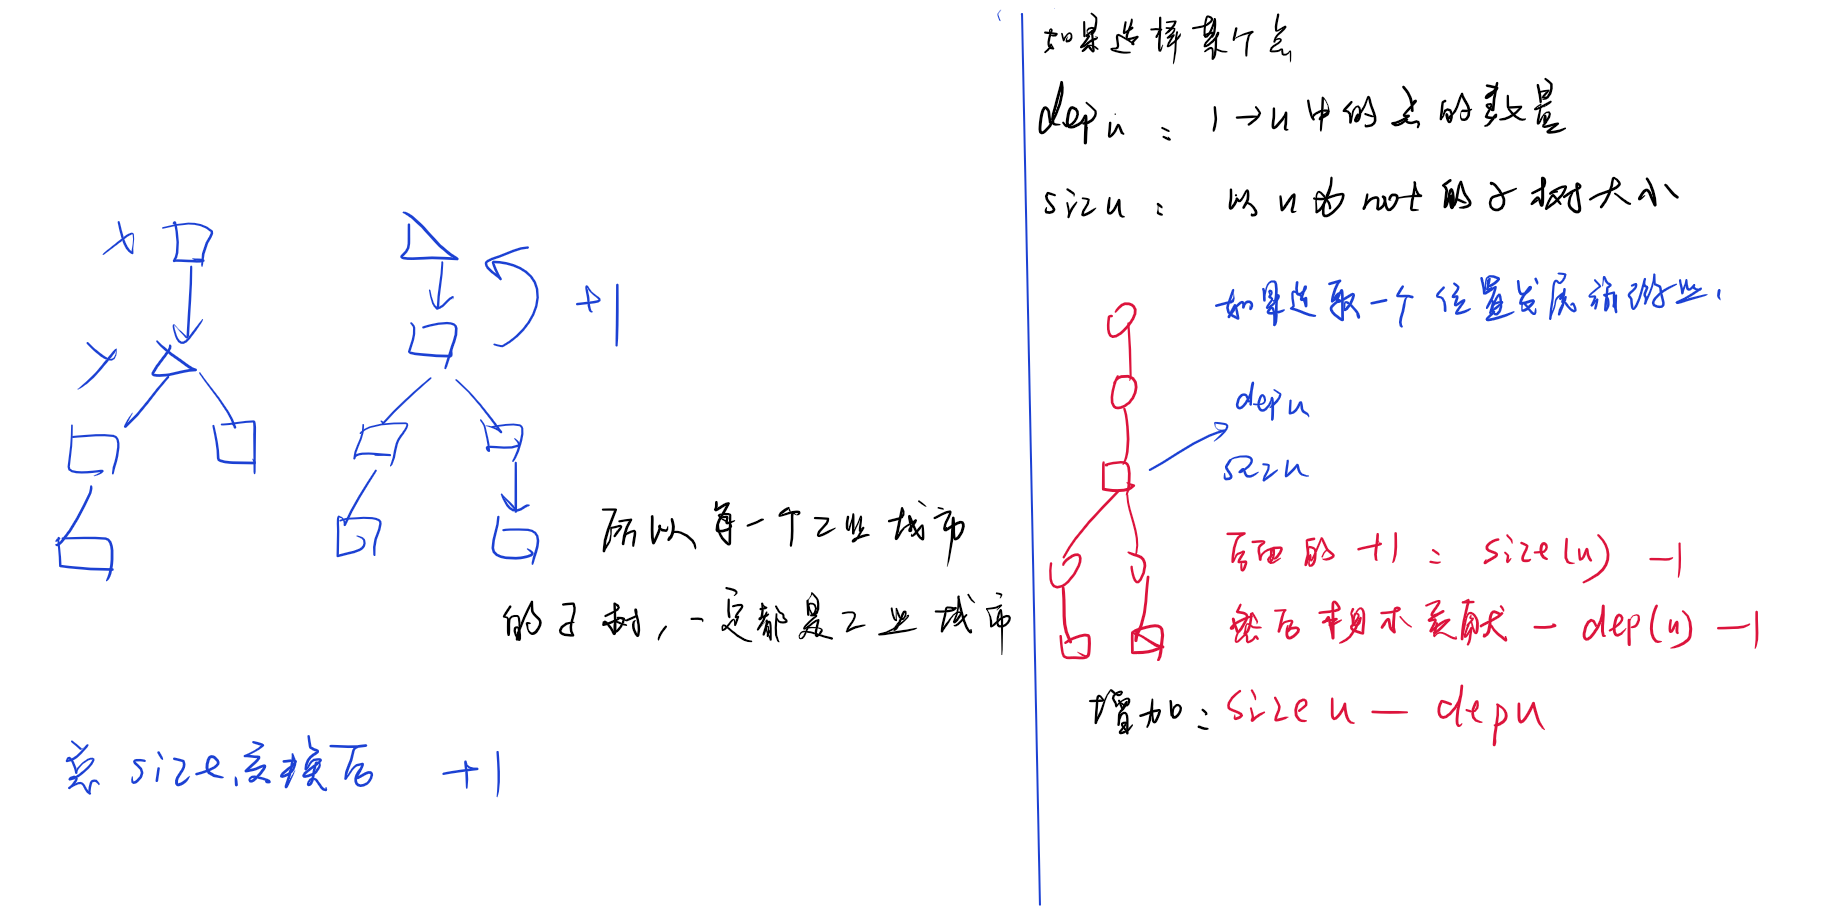 x
y
+1
所以每一个工业城市
的子树，一定都是工业城市
总 size，交换后 +1
如果选择某个点
dep u : 1→u 中的点的数量
siz u : 以 u 为 root 的子树大小
如果选取一个位置发展旅游业，
dep u
siz u
后面的 +1 : size(u) -1
然后本身不贡献 - dep(u) -1
增加 : size u - dep u